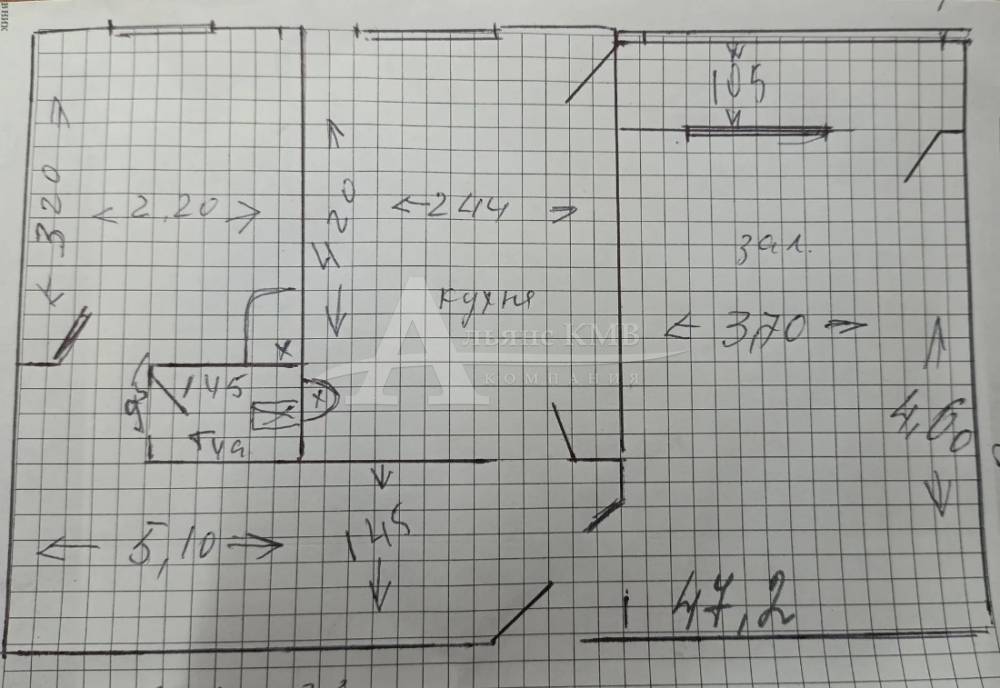 105
320
2,20
4 20
244
зал.
кухня
Альянс КМВ
компания
3,70
145
95
4,60
Туа
5,10
145
47,2